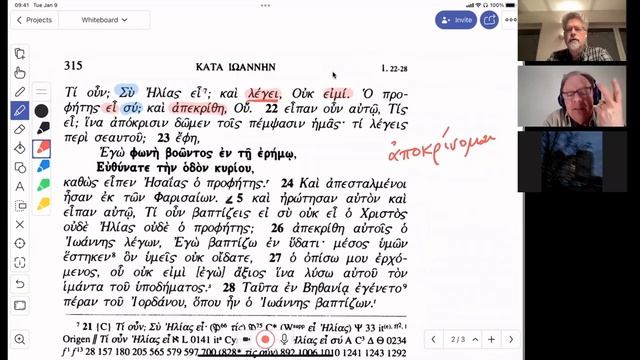 09:41 Tue Jan 9
Projects
Whiteboard
Invite
315 ΚΑΤΑ ΙΩΑΝΝΗΝ 1. 22-28
Τί οὖν; Σὺ Ἠλίας εἶ⁷; καὶ λέγει, Οὐκ εἰμί. Ὁ προ-
φήτης εἶ σύ; καὶ ἀπεκρίθη, Οὔ. 22 εἶπαν οὖν αὐτῷ, Τίς
εἶ; ἵνα ἀπόκρισιν δῶμεν τοῖς πέμψασιν ἡμᾶς· τί λέγεις
περὶ σεαυτοῦ; 23 ἔφη,
ἀποκρίνομαι
Ἐγὼ φωνὴ βοῶντος ἐν τῇ ἐρήμῳ,
Εὐθύνατε τὴν ὁδὸν κυρίου,
καθὼς εἶπεν Ἠσαΐας ὁ προφήτης.ʳ 24 Καὶ ἀπεσταλμένοι
ἦσαν ἐκ τῶν Φαρισαίων. ∠ 5 καὶ ἠρώτησαν αὐτὸν καὶ
εἶπαν αὐτῷ, Τί οὖν βαπτίζεις εἰ σὺ οὐκ εἶ ὁ Χριστὸς
οὐδὲ Ἠλίας οὐδὲ ὁ προφήτης; 26 ἀπεκρίθη αὐτοῖς ὁ
Ἰωάννης λέγων, Ἐγὼ βαπτίζω ἐν ὕδατι· μέσος ὑμῶν
ἕστηκεν⁸ ὃν ὑμεῖς οὐκ οἴδατε, 27 ὁ ὀπίσω μου ἐρχό-
μενος, οὗ οὐκ εἰμὶ [ἐγὼ] ἄξιος ἵνα λύσω αὐτοῦ τὸν
ἱμάντα τοῦ ὑποδήματος.ˢ 28 Ταῦτα ἐν Βηθανίᾳ ἐγένετο⁹
πέραν τοῦ Ἰορδάνου, ὅπου ἦν ὁ Ἰωάννης βαπτίζων.ᵗ
⁷ 21 {C} Τί οὖν; Σὺ Ἠλίας εἶ;
Origen
2 / 3